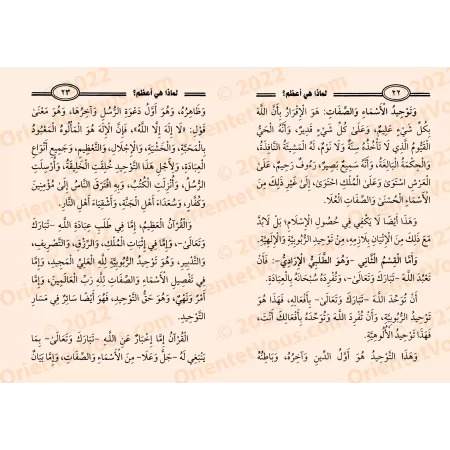 ٢٢ لماذا هي أعظم؟
وَتَوْحِيدُ الْأَسْمَاءِ وَالصِّفَاتِ: هُوَ الْإِقْرَارُ بِأَنَّ اللَّهَ
بِكُلِّ شَيْءٍ عَلِيمٌ، وَعَلَىٰ كُلِّ شَيْءٍ قَدِيرٌ، وَأَنَّهُ الْحَيُّ
الْقَيُّومُ الَّذِي لَا تَأْخُذُهُ سِنَةٌ وَلَا نَوْمٌ، لَهُ الْمَشِيئَةُ النَّافِذَةُ،
وَالْحِكْمَةُ الْبَالِغَةُ، وَأَنَّهُ سَمِيعٌ بَصِيرٌ، رَءُوفٌ رَحِيمٌ، عَلَىٰ
الْعَرْشِ اسْتَوَىٰ، وَعَلَىٰ الْمُلْكِ احْتَوَىٰ، إِلَىٰ غَيْرِ ذَلِكَ مِنَ
الْأَسْمَاءِ الْحُسْنَىٰ وَالصِّفَاتِ الْعُلَا.
وَهَذَا أَيْضًا لَا يَكْفِي فِي حُصُولِ الْإِسْلَامِ؛ بَلْ لَابُدَّ
مَعَ ذَلِكَ مِنَ الْإِتْيَانِ بِلَازِمِهِ، مِنْ تَوْحِيدِ الرُّبُوبِيَّةِ وَالْإِلَهِيَّةِ.
وَأَمَّا الْقِسْمُ الثَّانِي -وَهُوَ الطَّلَبِيُّ الْإِرَادِيُّ-: فَأَنْ
تَعْبُدَ اللَّهَ -تَبَارَكَ وَتَعَالَىٰ-، وَتُفْرِدَهُ سُبْحَانَهُ بِالْعِبَادَةِ.
أَنْ تُوَحِّدَ اللَّهَ -تَبَارَكَ وَتَعَالَىٰ- بِأَفْعَالِهِ، فَهَذَا هُوَ
تَوْحِيدُ الرُّبُوبِيَّةِ، وَأَنْ تُفْرِدَ اللَّهَ وَتُوَحِّدَهُ بِأَفْعَالِكَ أَنْتَ،
فَهَذَا تَوْحِيدُ الْأُلُوهِيَّةِ.
وَهَذَا التَّوْحِيدُ هُوَ أَوَّلُ الدِّينِ وَآخِرُهُ، وَبَاطِنُهُ
لماذا هي أعظم؟ ٢٣
وَظَاهِرُهُ، وَهُوَ أَوَّلُ دَعْوَةِ الرُّسُلِ وَآخِرُهَا، وَهُوَ مَعْنَىٰ
قَوْلِ: «لَا إِلَهَ إِلَّا اللَّهُ»، فَإِنَّ الْإِلَهَ هُوَ الْمَأْلُوهُ الْمَعْبُودُ
بِالْمَحَبَّةِ، وَالْخَشْيَةِ، وَالْإِجْلَالِ، وَالتَّعْظِيمِ، وَجَمِيعِ أَنْوَاعِ
الْعِبَادَةِ، وَلِأَجْلِ هَذَا التَّوْحِيدِ خُلِقَتِ الْخَلِيقَةُ، وَأُرْسِلَتِ
الرُّسُلُ، وَأُنْزِلَتِ الْكُتُبُ، وَبِهِ افْتَرَقَ النَّاسُ إِلَىٰ مُؤْمِنِينَ
وَكُفَّارٍ، وَسُعَدَاءَ أَهْلِ الْجَنَّةِ، وَأَشْقِيَاءَ أَهْلِ النَّارِ.
وَالْقُرْآنُ الْعَظِيمُ، إِمَّا فِي طَلَبِ عِبَادَةِ اللَّهِ -تَبَارَكَ
وَتَعَالَىٰ-، وَإِمَّا فِي إِثْبَاتِ الْمُلْكِ، وَالرِّزْقِ، وَالتَّصْرِيفِ،
وَالتَّدْبِيرِ، وَهُوَ تَوْحِيدُ الرُّبُوبِيَّةِ لِلَّهِ الْعَلِيِّ الْمَجِيدِ، وَإِمَّا
فِي تَفْصِيلِ الْأَسْمَاءِ وَالصِّفَاتِ لِلَّهِ رَبِّ الْعَالَمِينَ، وَإِمَّا
أَمْرٌ وَنَهْيٌ، وَهُوَ حَقُّ التَّوْحِيدِ، فَهُوَ أَيْضًا سَائِرٌ فِي مَسَارِ
التَّوْحِيدِ.
الْقُرْآنُ إِمَّا إِخْبَارٌ عَنِ اللَّهِ -تَبَارَكَ وَتَعَالَىٰ- بِمَا
يَنْبَغِي لَهُ -جَلَّ وَعَلَا- مِنَ الْأَسْمَاءِ وَالصِّفَاتِ، وَإِمَّا بَيَانُ
© 2022
OrientetVous.com